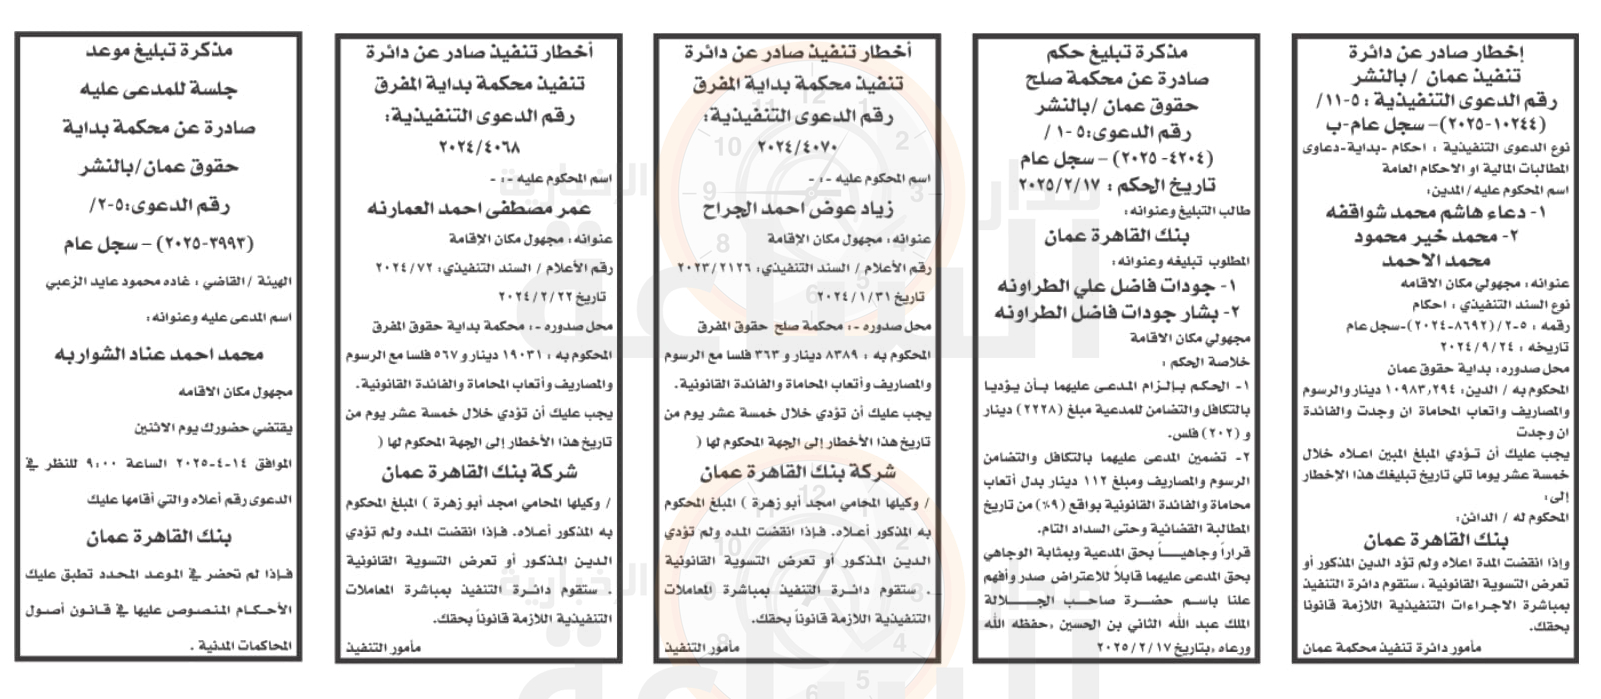 إخطار صادر عن دائرة
تنفيذ عمان / بالنشر
رقم الدعوى التنفيذية : ٥-١١/
(١٠٢٤٤-٢٠٢٥) - سجل عام-ب
نوع الدعوى التنفيذية : احكام -بداية-دعاوى
المطالبات المالية او الاحكام العامة
اسم المحكوم عليه / المدين:
١- دعاء هاشم محمد شواقفه
٢- محمد خير محمود
محمد الاحمد
عنوانه : مجهولي مكان الاقامه
نوع السند التنفيذي : احكام
رقمه : ٥-٢/ (٨٦٩٢-٢٠٢٤)-سجل عام
تاريخه : ٢٠٢٤/٩/٢٤
محل صدوره: بداية حقوق عمان
المحكوم به / الدين: ١٠٩٨٣,٢٩٤ دينار والرسوم
والمصاريف واتعاب المحاماة ان وجدت والفائدة
ان وجدت
يجب عليك أن تؤدي المبلغ المبين اعلاه خلال
خمسة عشر يوما تلي تاريخ تبليغك هذا الإخطار
إلى :
المحكوم له / الدائن:
بنك القاهرة عمان
وإذا انقضت المدة اعلاه ولم تؤد الدين المذكور أو
تعرض التسوية القانونية ، ستقوم دائرة التنفيذ
بمباشرة الاجراءات التنفيذية اللازمة قانونا
بحقك.
مأمور دائرة تنفيذ محكمة عمان
مذكرة تبليغ حكم
صادرة عن محكمة صلح
حقوق عمان /بالنشر
رقم الدعوى:٥-١ /
(٤٢٠٤- ٢٠٢٥) - سجل عام
تاريخ الحكم : ٢٠٢٥/٢/١٧
طالب التبليغ وعنوانه :
بنك القاهرة عمان
المطلوب تبليغه وعنوانه :
١- جودات فاضل علي الطراونه
٢- بشار جودات فاضل الطراونه
مجهولي مكان الاقامة
خلاصة الحكم :
١- الحكم بإلزام المدعى عليهما بأن يؤديا
بالتكافل والتضامن للمدعية مبلغ (٢٢٢٨) دينار
و (٢٠٢) فلس.
٢- تضمين المدعى عليهما بالتكافل والتضامن
الرسوم والمصاريف ومبلغ ١١٢ دينار بدل أتعاب
محاماة والفائدة القانونية بواقع (٩%) من تاريخ
المطالبة القضائية وحتى السداد التام.
قراراً وجاهيـــاً بحق المدعية وبمثابة الوجاهي
بحق المدعى عليهما قابلاً للاعتراض صدر وأفهم
علنا باسم حضرة صاحب الجـــلالة
الملك عبد الله الثاني بن الحسين ،حفظه الله
ورعاه ،بتاريخ ٢٠٢٥/٢/١٧
أخطار تنفيذ صادر عن دائرة
تنفيذ محكمة بداية المفرق
رقم الدعوى التنفيذية:
٢٠٢٤/٤٠٧٠
اسم المحكوم عليه -: -
زياد عوض احمد الجراح
عنوانه : مجهول مكان الإقامة
رقم الأعلام / السند التنفيذي: ٢٠٢٣/٢١٢٦
تاريخ ٢٠٢٤/١/٣١
محل صدوره -: محكمة صلح حقوق المفرق
المحكوم به : ٨٣٨٩ دينار و ٣٦٣ فلسا مع الرسوم
والمصاريف وأتعاب المحاماة والفائدة القانونية.
يجب عليك أن تؤدي خلال خمسة عشر يوم من
تاريخ هذا الأخطار إلى الجهة المحكوم لها (
شركة بنك القاهرة عمان
/ وكيلها المحامي امجد أبو زهرة ) المبلغ المحكوم
به المذكور أعلاه. فإذا انقضت المده ولم تؤدي
الدين المذكور أو تعرض التسوية القانونية
. ستقوم دائرة التنفيذ بمباشرة المعاملات
التنفيذية اللازمة قانوناً بحقك.
مأمور التنفيذ
أخطار تنفيذ صادر عن دائرة
تنفيذ محكمة بداية المفرق
رقم الدعوى التنفيذية:
٢٠٢٤/٤٠٦٨
اسم المحكوم عليه -: -
عمر مصطفى احمد العمارنه
عنوانه : مجهول مكان الإقامة
رقم الأعلام / السند التنفيذي: ٢٠٢٤/٧٢
تاريخ ٢٠٢٤/٢/٢٢
محل صدوره -: محكمة بداية حقوق المفرق
المحكوم به : ١٩٠٣١ دينار و ٥٦٧ فلسا مع الرسوم
والمصاريف وأتعاب المحاماة والفائدة القانونية.
يجب عليك أن تؤدي خلال خمسة عشر يوم من
تاريخ هذا الأخطار إلى الجهة المحكوم لها (
شركة بنك القاهرة عمان
/ وكيلها المحامي امجد أبو زهرة ) المبلغ المحكوم
به المذكور أعلاه. فإذا انقضت المده ولم تؤدي
الدين المذكور أو تعرض التسوية القانونية
. ستقوم دائرة التنفيذ بمباشرة المعاملات
التنفيذية اللازمة قانوناً بحقك.
مأمور التنفيذ
مذكرة تبليغ موعد
جلسة للمدعى عليه
صادرة عن محكمة بداية
حقوق عمان/بالنشر
رقم الدعوى:٥-٢/
(٣٩٩٣-٢٠٢٥) - سجل عام
الهيئة / القاضي : غاده محمود عايد الزعبي
اسم المدعى عليه وعنوانه :
محمد احمد عناد الشواربه
مجهول مكان الاقامه
يقتضي حضورك يوم الاثنين
الموافق ١٤-٤-٢٠٢٥ الساعة ٩:٠٠ للنظر في
الدعوى رقم أعلاه والتي أقامها عليك
بنك القاهرة عمان
فإذا لم تحضر في الموعد المحدد تطبق عليك
الأحكام المنصوص عليها في قانون أصول
المحاكمات المدنية .
مدار الساعة
الإخبارية